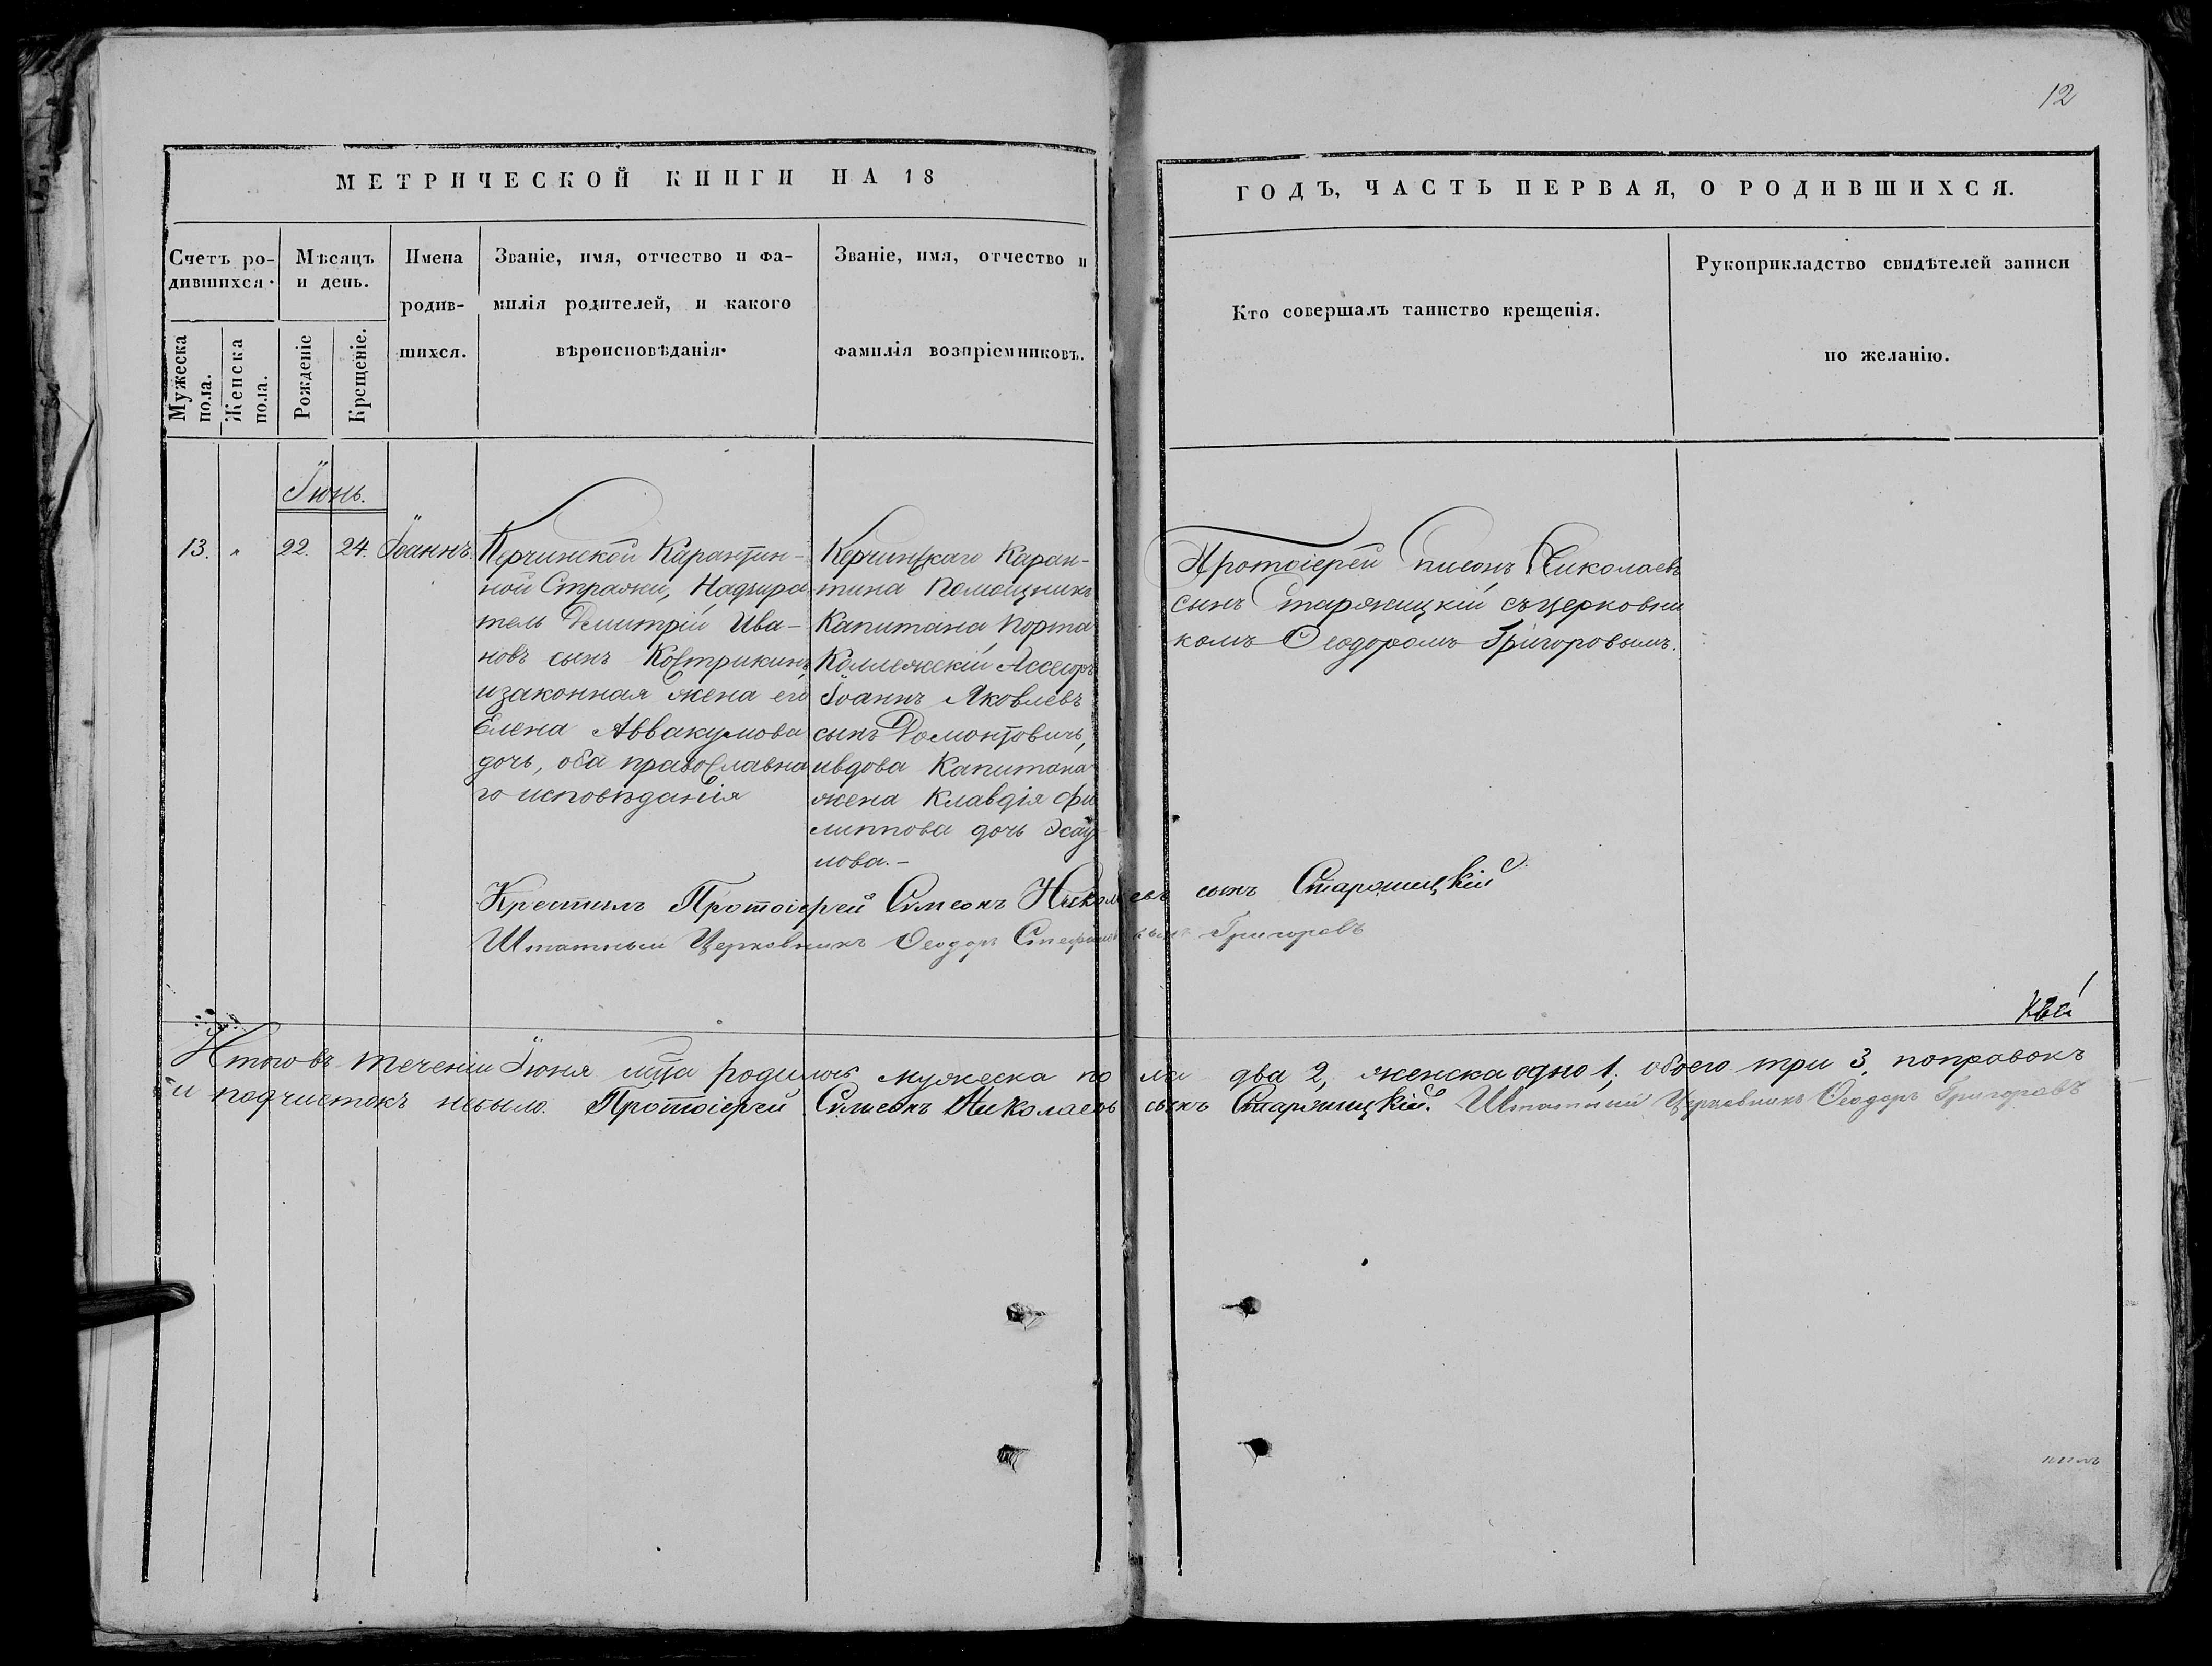 12
МЕТРИЧЕСКОЙ КНИГИ НА 18
ГОДЪ, ЧАСТЬ ПЕРВАЯ, О РОДИВШИХСЯ.
Счетъ ро-
дившихся.
Мужеска
пола.
Женска
пола.
Мѣсяцъ
и день.
Рожденіе
Крещеніе.
Имена
родив-
шихся.
Званіе, имя, отчество и фа-
милія родителей, и какого
вѣроисповѣданія.
Званіе, имя, отчество и
фамилія возпріемниковъ.
Кто совершалъ таинство крещенія.
Рукоприкладство свидѣтелей записи
по желанію.
Іюнь.
13. " 22. 24. Іоаннъ.
Керчинской Карантин-
ной Стражи, Надзира
тель Димитрій Ива-
новъ сынъ Кострикинъ,
и законная жена его
Елена Аввакумова
дочь, оба православна
го исповѣданія
Керчинскаго Каран-
тина Помощникъ
Капитана Порта
Коллежскій Ассесоръ
Іоаннъ Яковлевъ
сынъ Домонтовичъ,
и вдова Капитана
жена Клавдія Фи
липпова дочь Эсау
лова.-
Протоіерей Симеонъ Николаевъ
сынъ Старжицкій съ церковни
комъ Ѳеодоромъ Григоровымъ.
Крестилъ Протоіерей Симеонъ Николаевъ сынъ Старжицкій
Штатный Церковникъ Ѳеодоръ Стефановъ сынъ Григоровъ
Итого въ теченіи Іюня мца родилось мужеска пола два 2, женска одно 1, обоего три 3, поправокъ
и подчистокъ небыло. Протоіерей Симеонъ Николаевъ сынъ Старжицкій. Штатный Церковникъ Ѳеодоръ Григоровъ